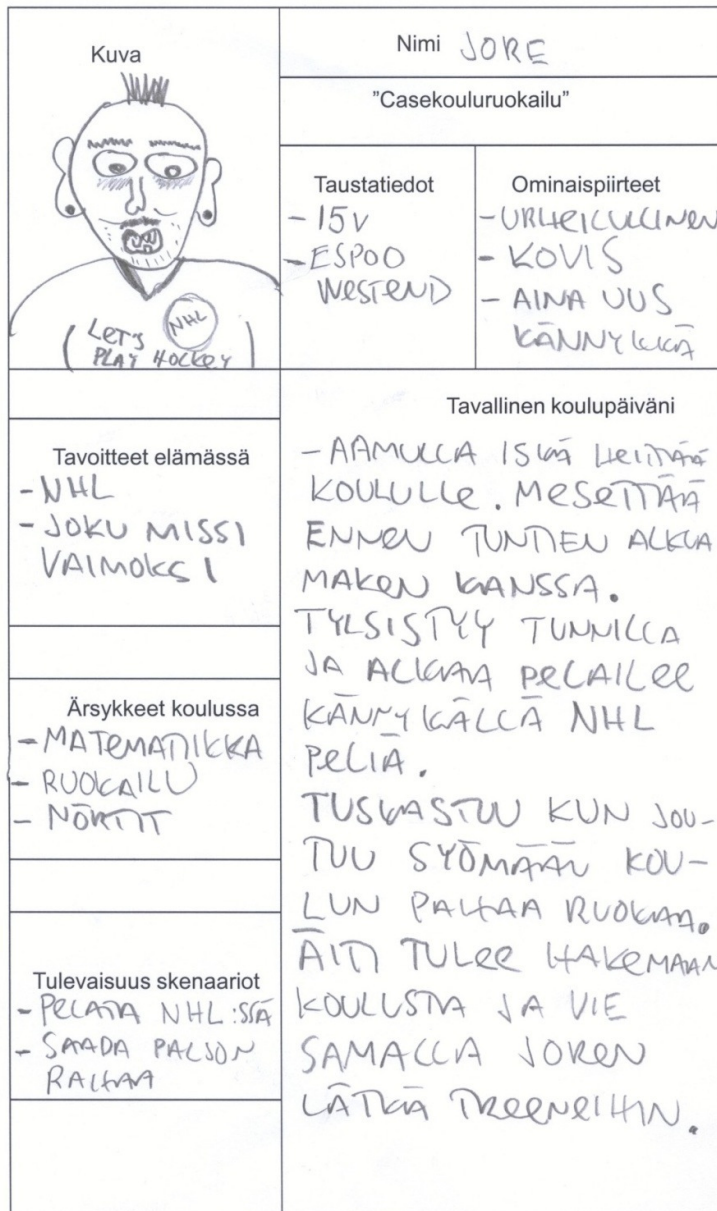 Kuva
NHL
LET'S
PLAY HOCKEY
Nimi JORE
"Casekouluruokailu"
Taustatiedot
- 15V
- ESPOO
WESTEND
Ominaispiirteet
- URHEILULLINEN
- KOVIS
- AINA UUS
KÄNNYKKÄ
Tavoitteet elämässä
- NHL
- JOKU MISSI
VAIMOKSI
Ärsykkeet koulussa
- MATEMATIIKKA
- RUOKAILU
- NÖRTIT
Tulevaisuus skenaariot
- PELATA NHL:SSÄ
- SAADA PALJON
RAHAA
Tavallinen koulupäiväni
- AAMULLA ISKÄ HEITTÄÄ
KOULULLE. MESETTÄÄ
ENNEN TUNTIEN ALKUA
MAKEN KANSSA.
TYLSISTYY TUNNILLA
JA ALKAA PELAILEE
KÄNNYKÄLLÄ NHL
PELIÄ.
TUSKASTUU KUN JOU-
TUU SYÖMÄÄN KOU-
LUN PAHAA RUOKAA.
ÄITI TULEE HAKEMAAN
KOULUSTA JA VIE
SAMALLA JOREN
LÄTKÄ TREENEIHIN.